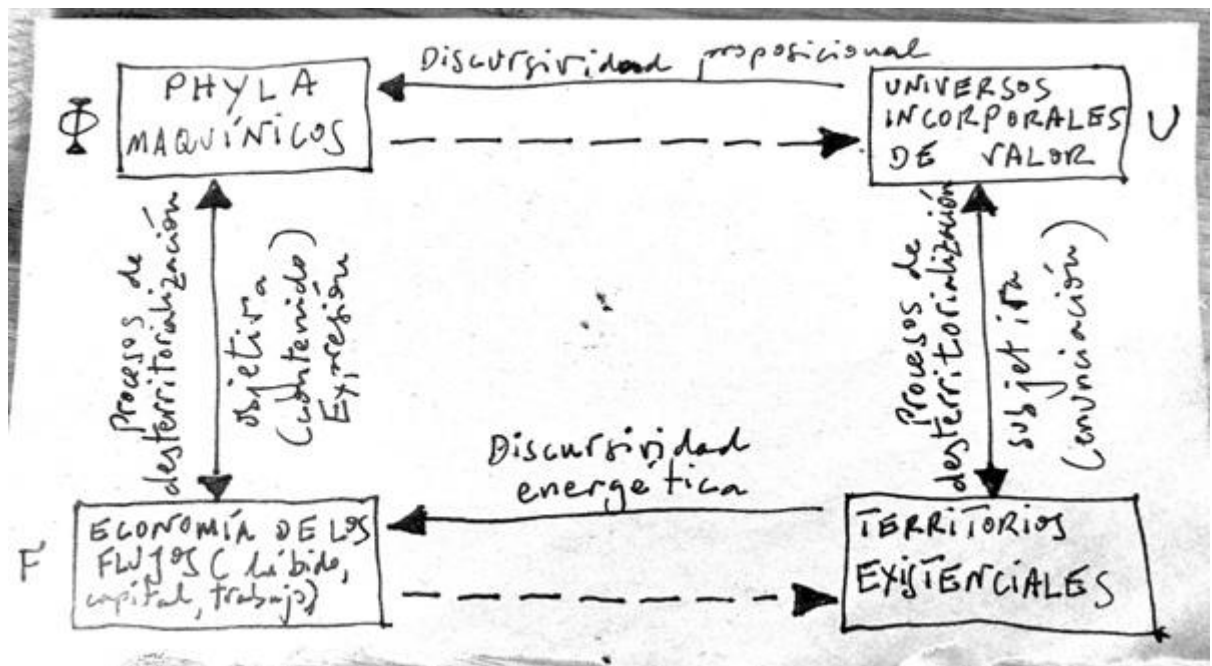 Discursividad proposicional
Φ
PHYLA
MAQUÍNICOS
UNIVERSOS
INCORPORALES
DE VALOR
U
Proceso de
desterritorialización
objetiva
(contenido)
Expresión
Procesos de
desterritorialización
subjetiva
(enunciación)
Discursividad
energética
F
ECONOMÍA DE LOS
FLUJOS (líbido,
capital, trabajo)
TERRITORIOS
EXISTENCIALES